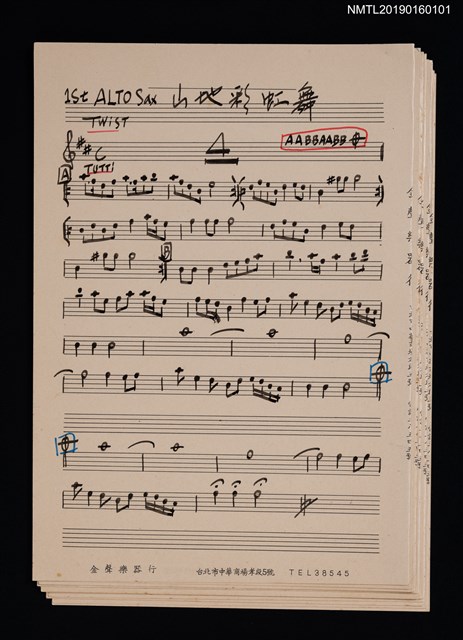 NMTL20190160101
1St ALTO Sax 山地彩虹舞
TWIST
AABBAABB
C
4
TUTTI
A
B
金聲樂器行 台北市中華商場孝段5號 TEL38545